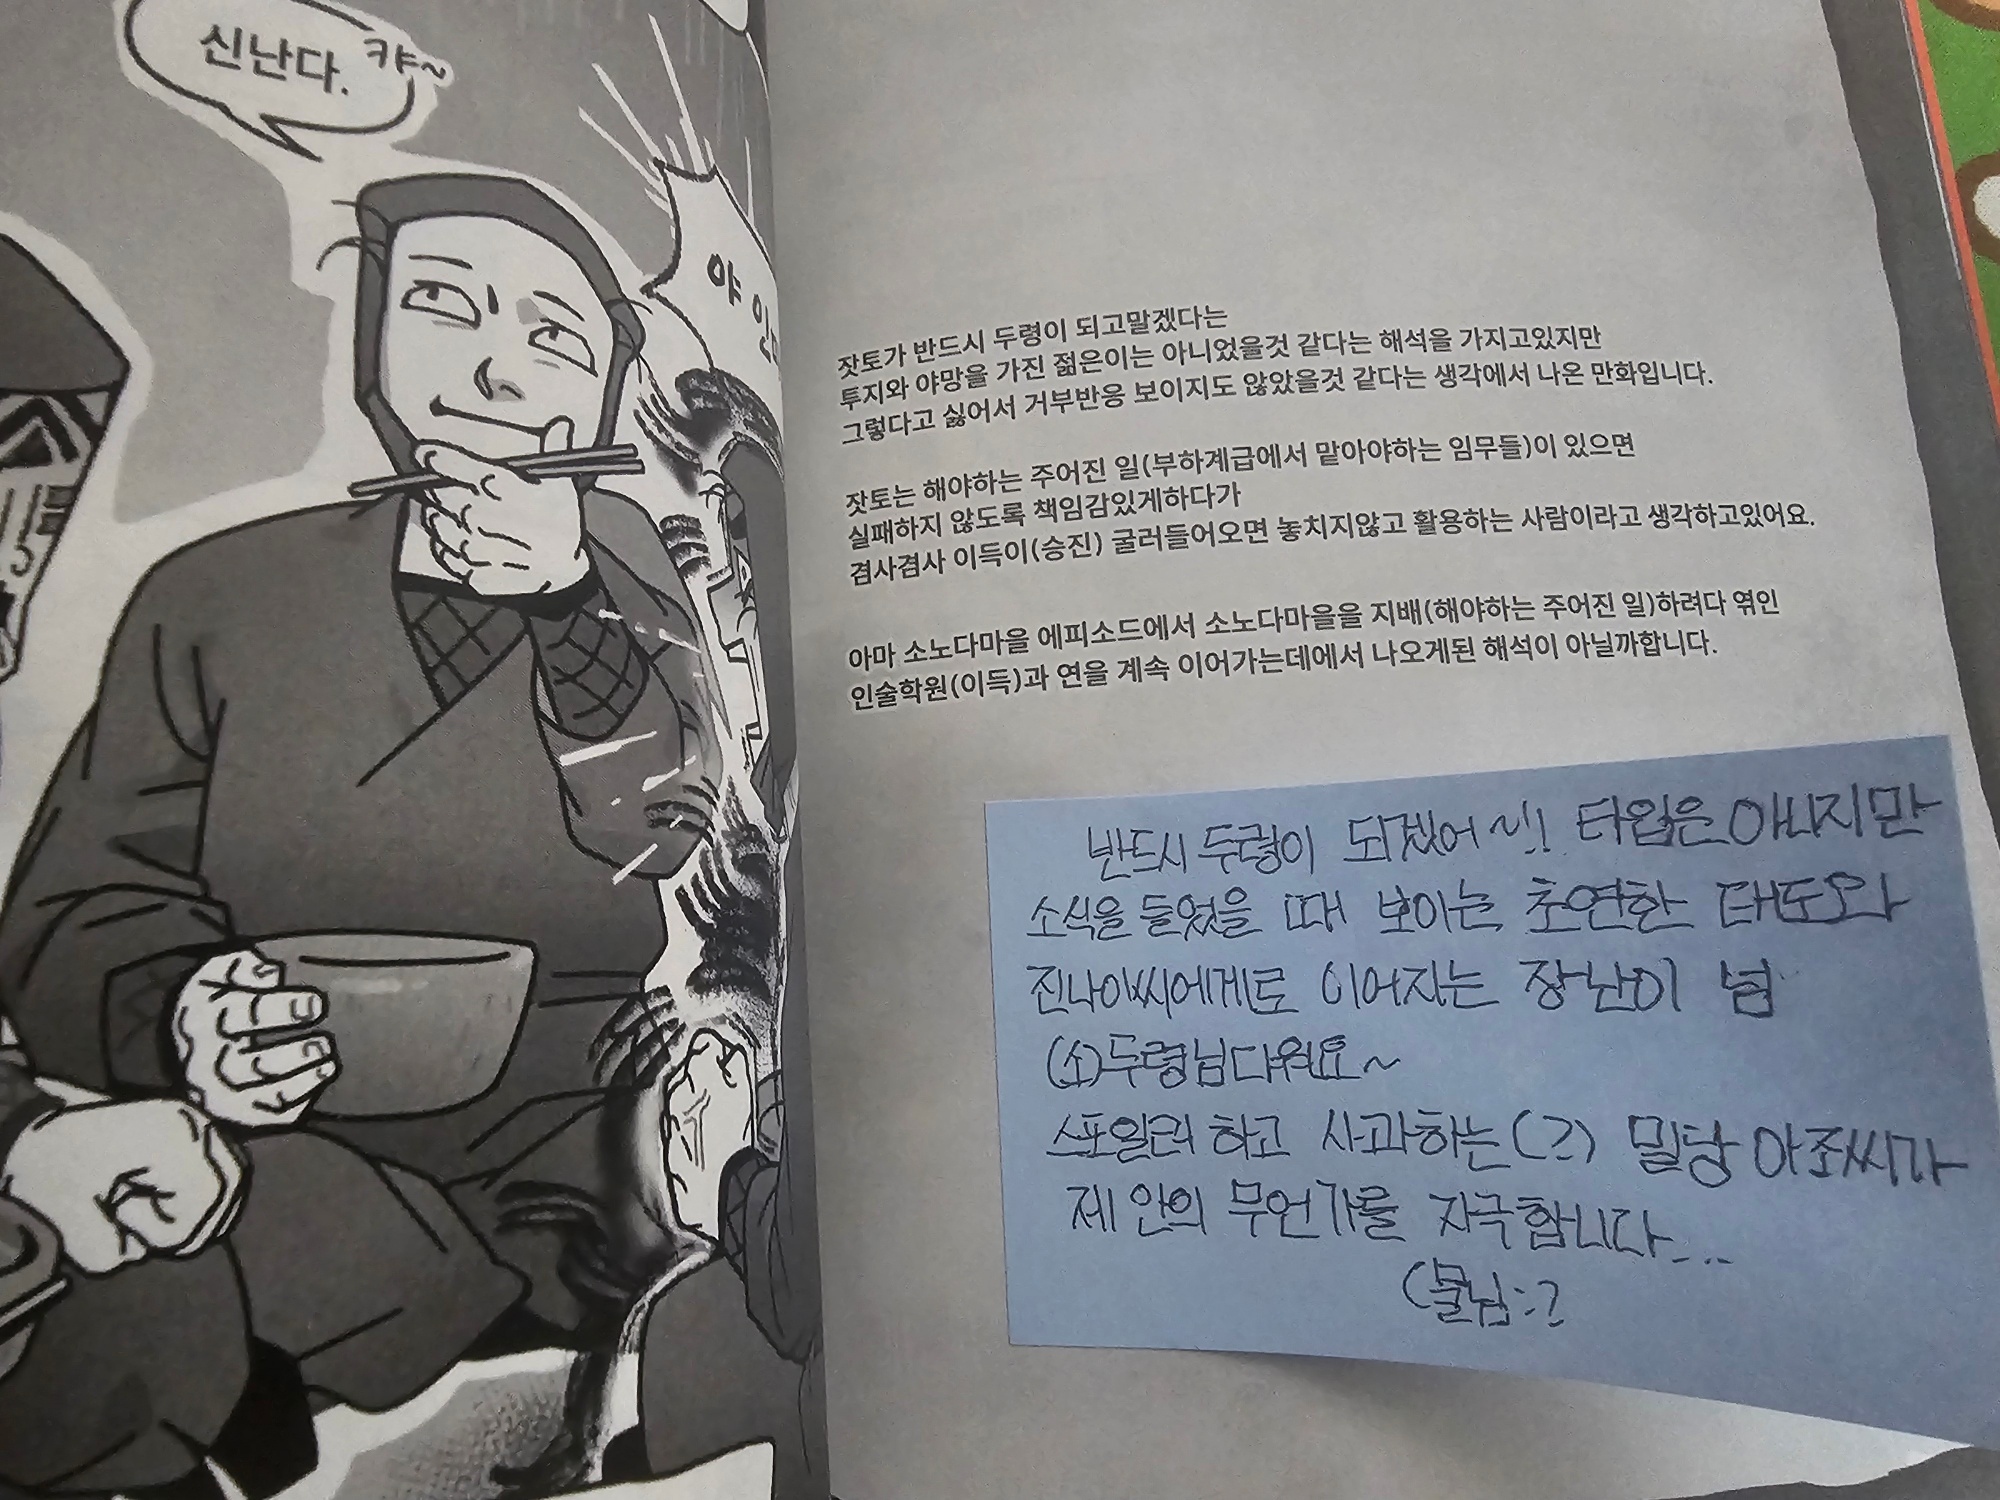 신난다. 캬~
야 인
잣토가 반드시 두령이 되고말겠다는
투지와 야망을 가진 젊은이는 아니었을것 같다는 해석을 가지고있지만
그렇다고 싫어서 거부반응 보이지도 않았을것 같다는 생각에서 나온 만화입니다.
잣토는 해야하는 주어진 일(부하계급에서 맡아야하는 임무들)이 있으면
실패하지 않도록 책임감있게하다가
겸사겸사 이득이(승진) 굴러들어오면 놓치지않고 활용하는 사람이라고 생각하고있어요.
아마 소노다마을 에피소드에서 소노다마을을 지배(해야하는 주어진 일)하려다 엮인
인술학원(이득)과 연을 계속 이어가는데에서 나오게된 해석이 아닐까합니다.
반드시 두령이 되겠어~!! 타입은 아니지만
소식을 들었을 때 보이는 초연한 태도와
진나이씨에게로 이어지는 장난이 넘
(소)두령님다워요~
스포일러 하고 사과하는(?) 밀당 아조씨가
제 안의 무언가를 자극합니다...